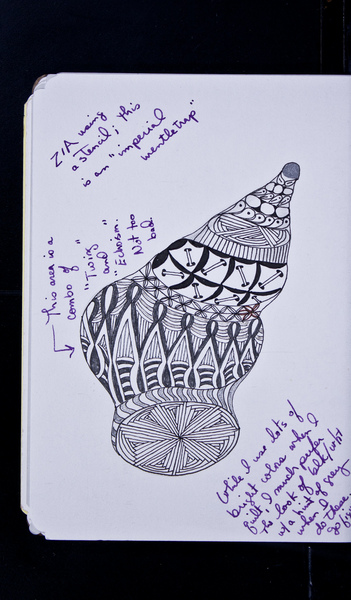 ZIA using
a stencil; this
is an "imperial
wentletrap"
This area is a
combo of
"Twing"
and
"Echoism."
Not too
bad.
While I use lots of
bright colors when I
quilt, I much prefer
the look of blk/wht
w/ a hint of grey
when I
do these